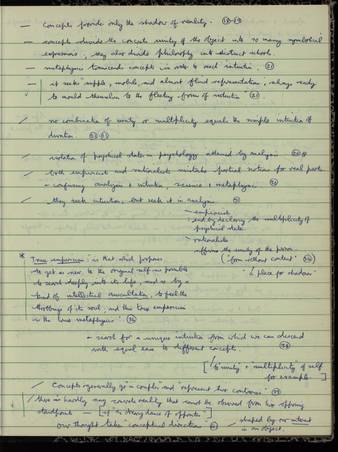 — Concepts provide only the shadow of reality.
— concepts divide the concrete unity of the object into so many symbolical
expressions, they also divide philosophy into distinct schools.
— metaphysics transcends concepts in order to reach intuition
— it seeks "supple, mobile, and almost fluid representations, always ready
to mould themselves to the fleeting forms of intuition"
/ no combination of unity or multiplicity equals the simple intuition of
duration
/ isolation of psychical states in psychology attained by analysis
/ both empiricists and rationalists mistake partial notions for real parts
— confusing analysis & intuition, science & metaphysics
/ they seek intuition, but seek it in analysis
— empiricist
end by declaring the multiplicity of
psychical states
— rationalists
affirms the unity of the person
("form without content")
"a place for shadows"
* True empiricism "is that which proposes
to get as near to the original itself as possible
to search deeply into its life, and so by a
kind of intellectual auscultation, to feel the
throbbings of its soul, and this true empiricism
is the true metaphysics".
— search for a unique intuition from which we can descend
with equal ease to different concepts.
[to "unity" & "multiplicity" of self
for example.]
/ Concepts "generally go in couples and represent two contraries"
/ there is hardly any concrete reality that cannot be observed from two opposing
standpoints —
our thought takes "conceptual direction" / shaped by our interest
in an object.